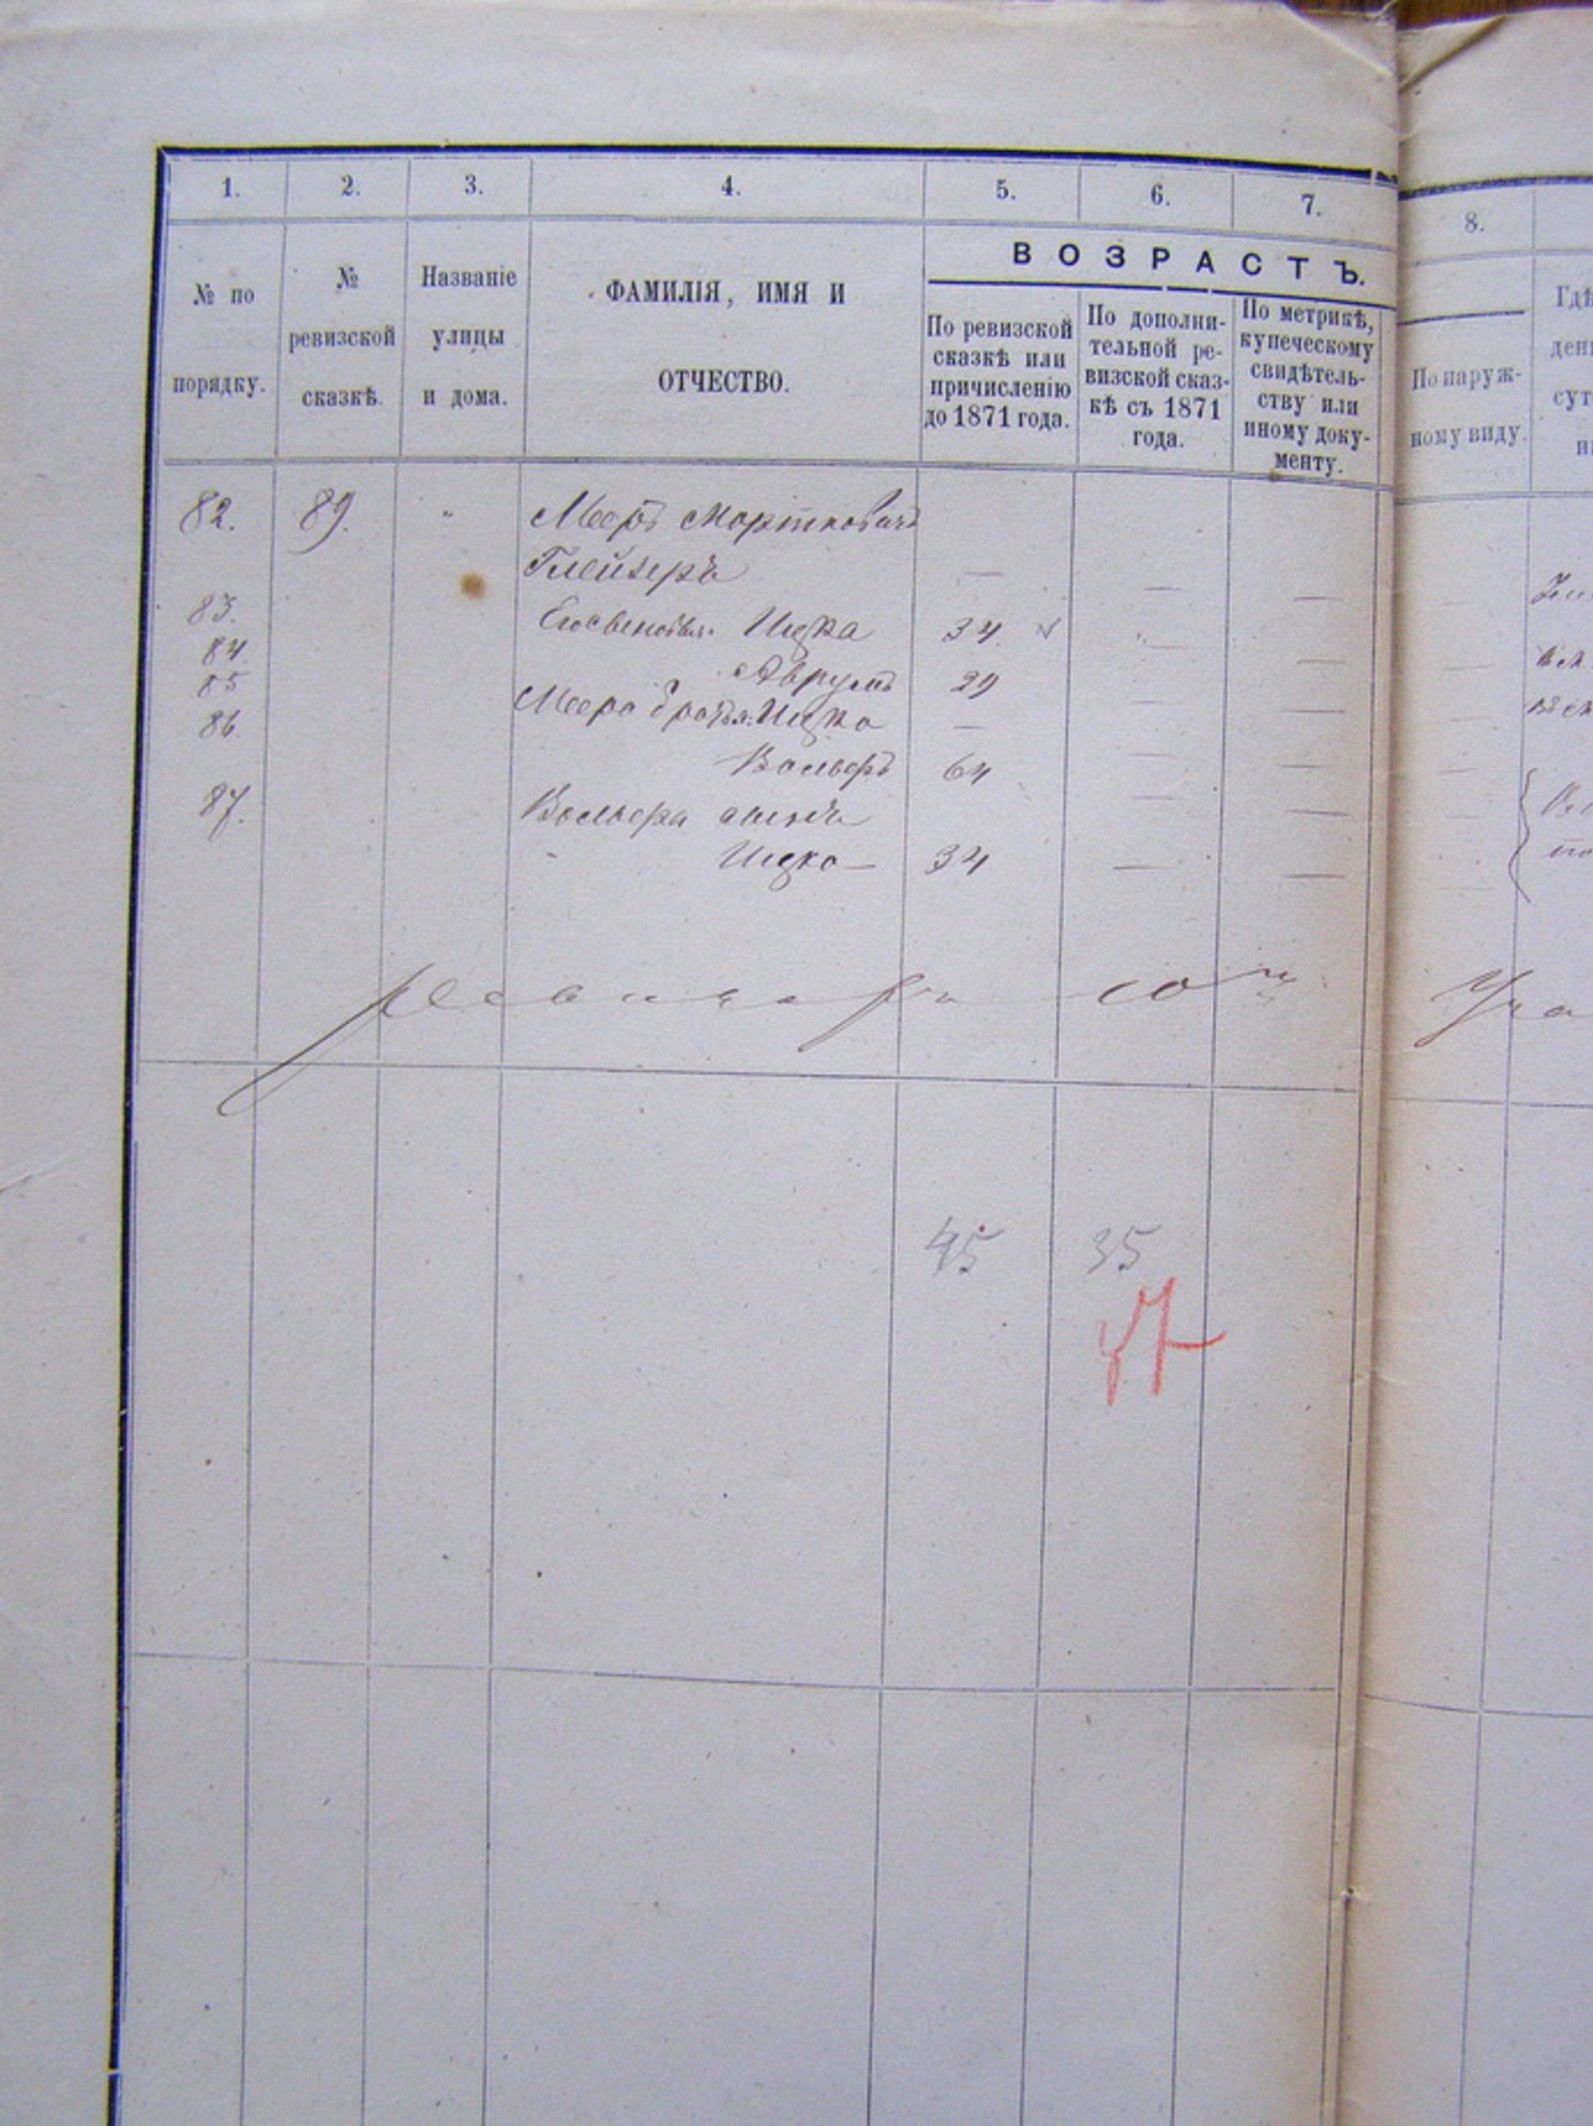 1. 2. 3. 4. 5. 6. 7. 8.
№ по
порядку.
№
ревизской
сказкѣ.
Названіе
улицы
и дома.
ФАМИЛІЯ, ИМЯ И
ОТЧЕСТВО.
ВОЗРАСТЪ.
По ревизской
сказкѣ или
причисленію
до 1871 года.
По дополни-
тельной ре-
визской сказ-
кѣ съ 1871
года.
По метрикѣ,
купеческому
свидѣтель-
ству или
иному доку-
менту.
По наруж-
ному виду.
Гдѣ
ден
сут
н
82. 89. " Мееръ Мортковичъ
Глейзеръ —  —  —
83. Ицка 34
84 Аврумъ 29
85 Меера братья: Ицко —
86. Вольфъ 64
87. Вольфа сынъ
Ицко — 34 — —
45 35